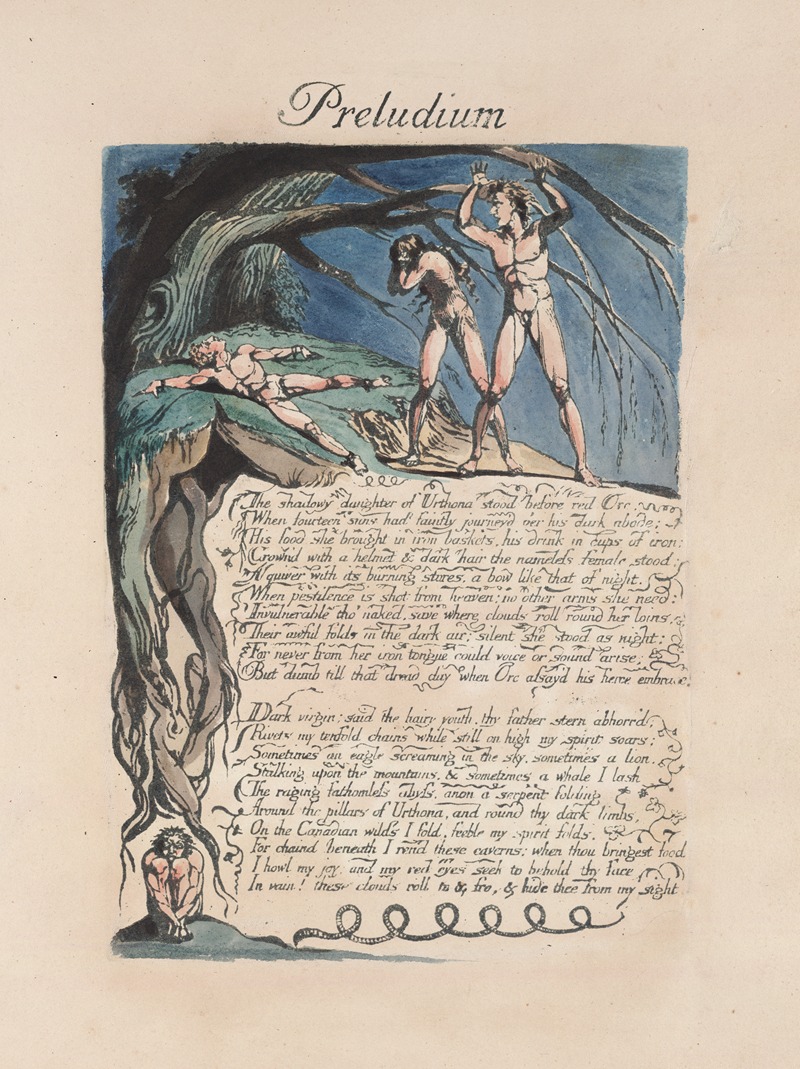 Preludium
The shadowy daughter of Urthona stood before red Orc.
When fourteen suns had faintly journey'd o'er his dark abode;
His food she brought in iron baskets, his drink in cups of iron:
Crown'd with a helmet & dark hair the nameless female stood;
A quiver with its burning stores, a bow like that of night,
When pestilence is shot from heaven; no other arms she need:
Invulnerable tho' naked, save where clouds roll round her loins,
Their awful folds in the dark air; silent she stood as night;
For never from her iron tongue could voice or sound arise;
But dumb till that dread day when Orc assay'd his fierce embrace.
Dark virgin; said the hairy youth, thy father stern abhorr'd;
Rivets my tenfold chains while still on high my spirit soars;
Sometimes an eagle screaming in the sky, sometimes a lion,
Stalking upon the mountains, & sometimes a whale I lash
The raging fathomless abyss, anon a serpent folding
Around the pillars of Urthona, and round thy dark limbs,
On the Canadian wilds I fold, feeble my spirit folds.
For chaind beneath I rend these caverns; when thou bringest food
I howl my joy; and my red eyes seek to behold thy face
In vain! these clouds roll to & fro, & hide thee from my sight